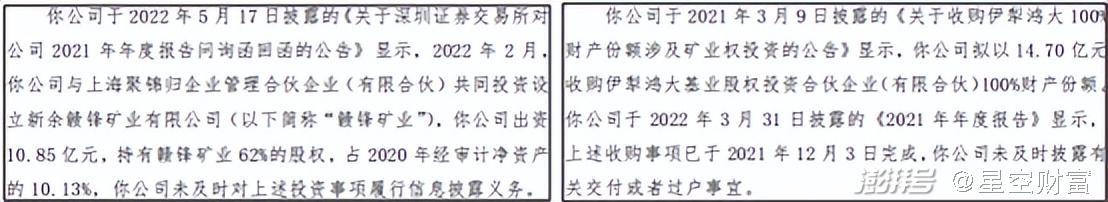 你公司于2022年5月17日披露的《关于深圳证券交易所对
公司2021年年度报告问询函回函的公告》显示，2022年2月，
你公司与上海聚锦归企业管理合伙企业（有限合伙）共同投资设
立新余赣锋矿业有限公司（以下简称“赣锋矿业”），你公司出资
10.85亿元，持有赣锋矿业62%的股权，占2020年经审计净资产
的10.13%，你公司未及时对上述投资事项履行信息披露义务。
你公司于2021年3月9日披露的《关于收购伊犁鸿大100%
财产份额涉及矿业权投资的公告》显示，你公司拟以14.70亿元
收购伊犁鸿大基业股权投资合伙企业(有限合伙)100%财产份额。
你公司于2022年3月31日披露的《2021年年度报告》显示，
上述收购事项已于2021年12月3日完成，你公司未及时披露有
关交付或者过户事宜。
澎湃号 @星空财富